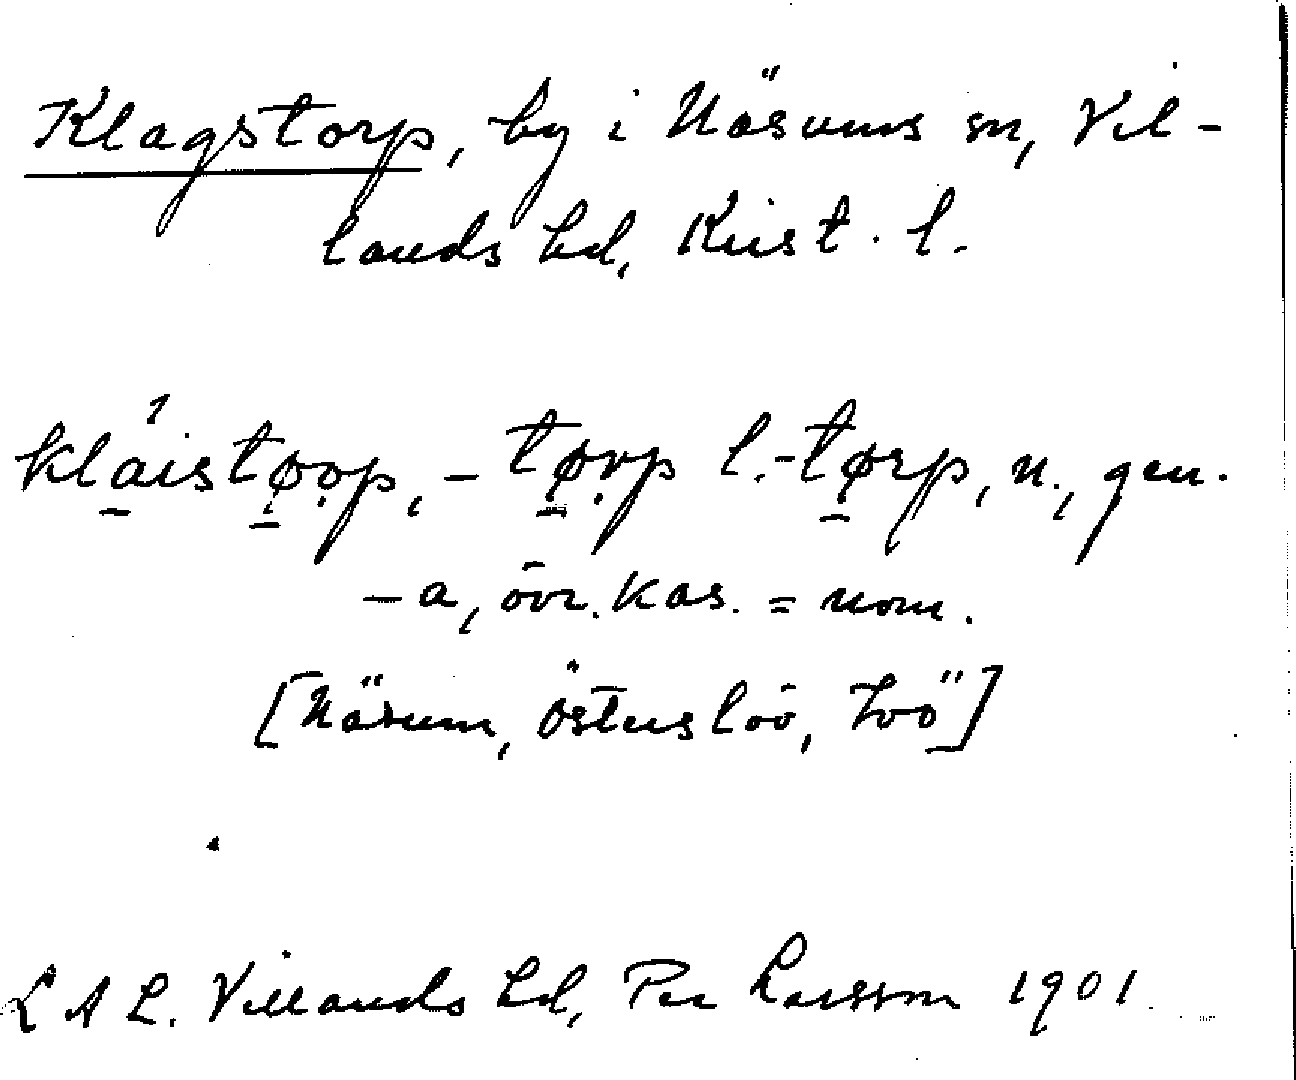 Klagstorp, by i Näsums sn, Vil-
lands hd, Krist. l.
kláistǫǫp, -tǫrp l. -tørp, n., gen.
-a, övr. kas. = nom.
[Näsum, Österslöv, Ivö]
L A L. Villands hd, Per Larsson 1901